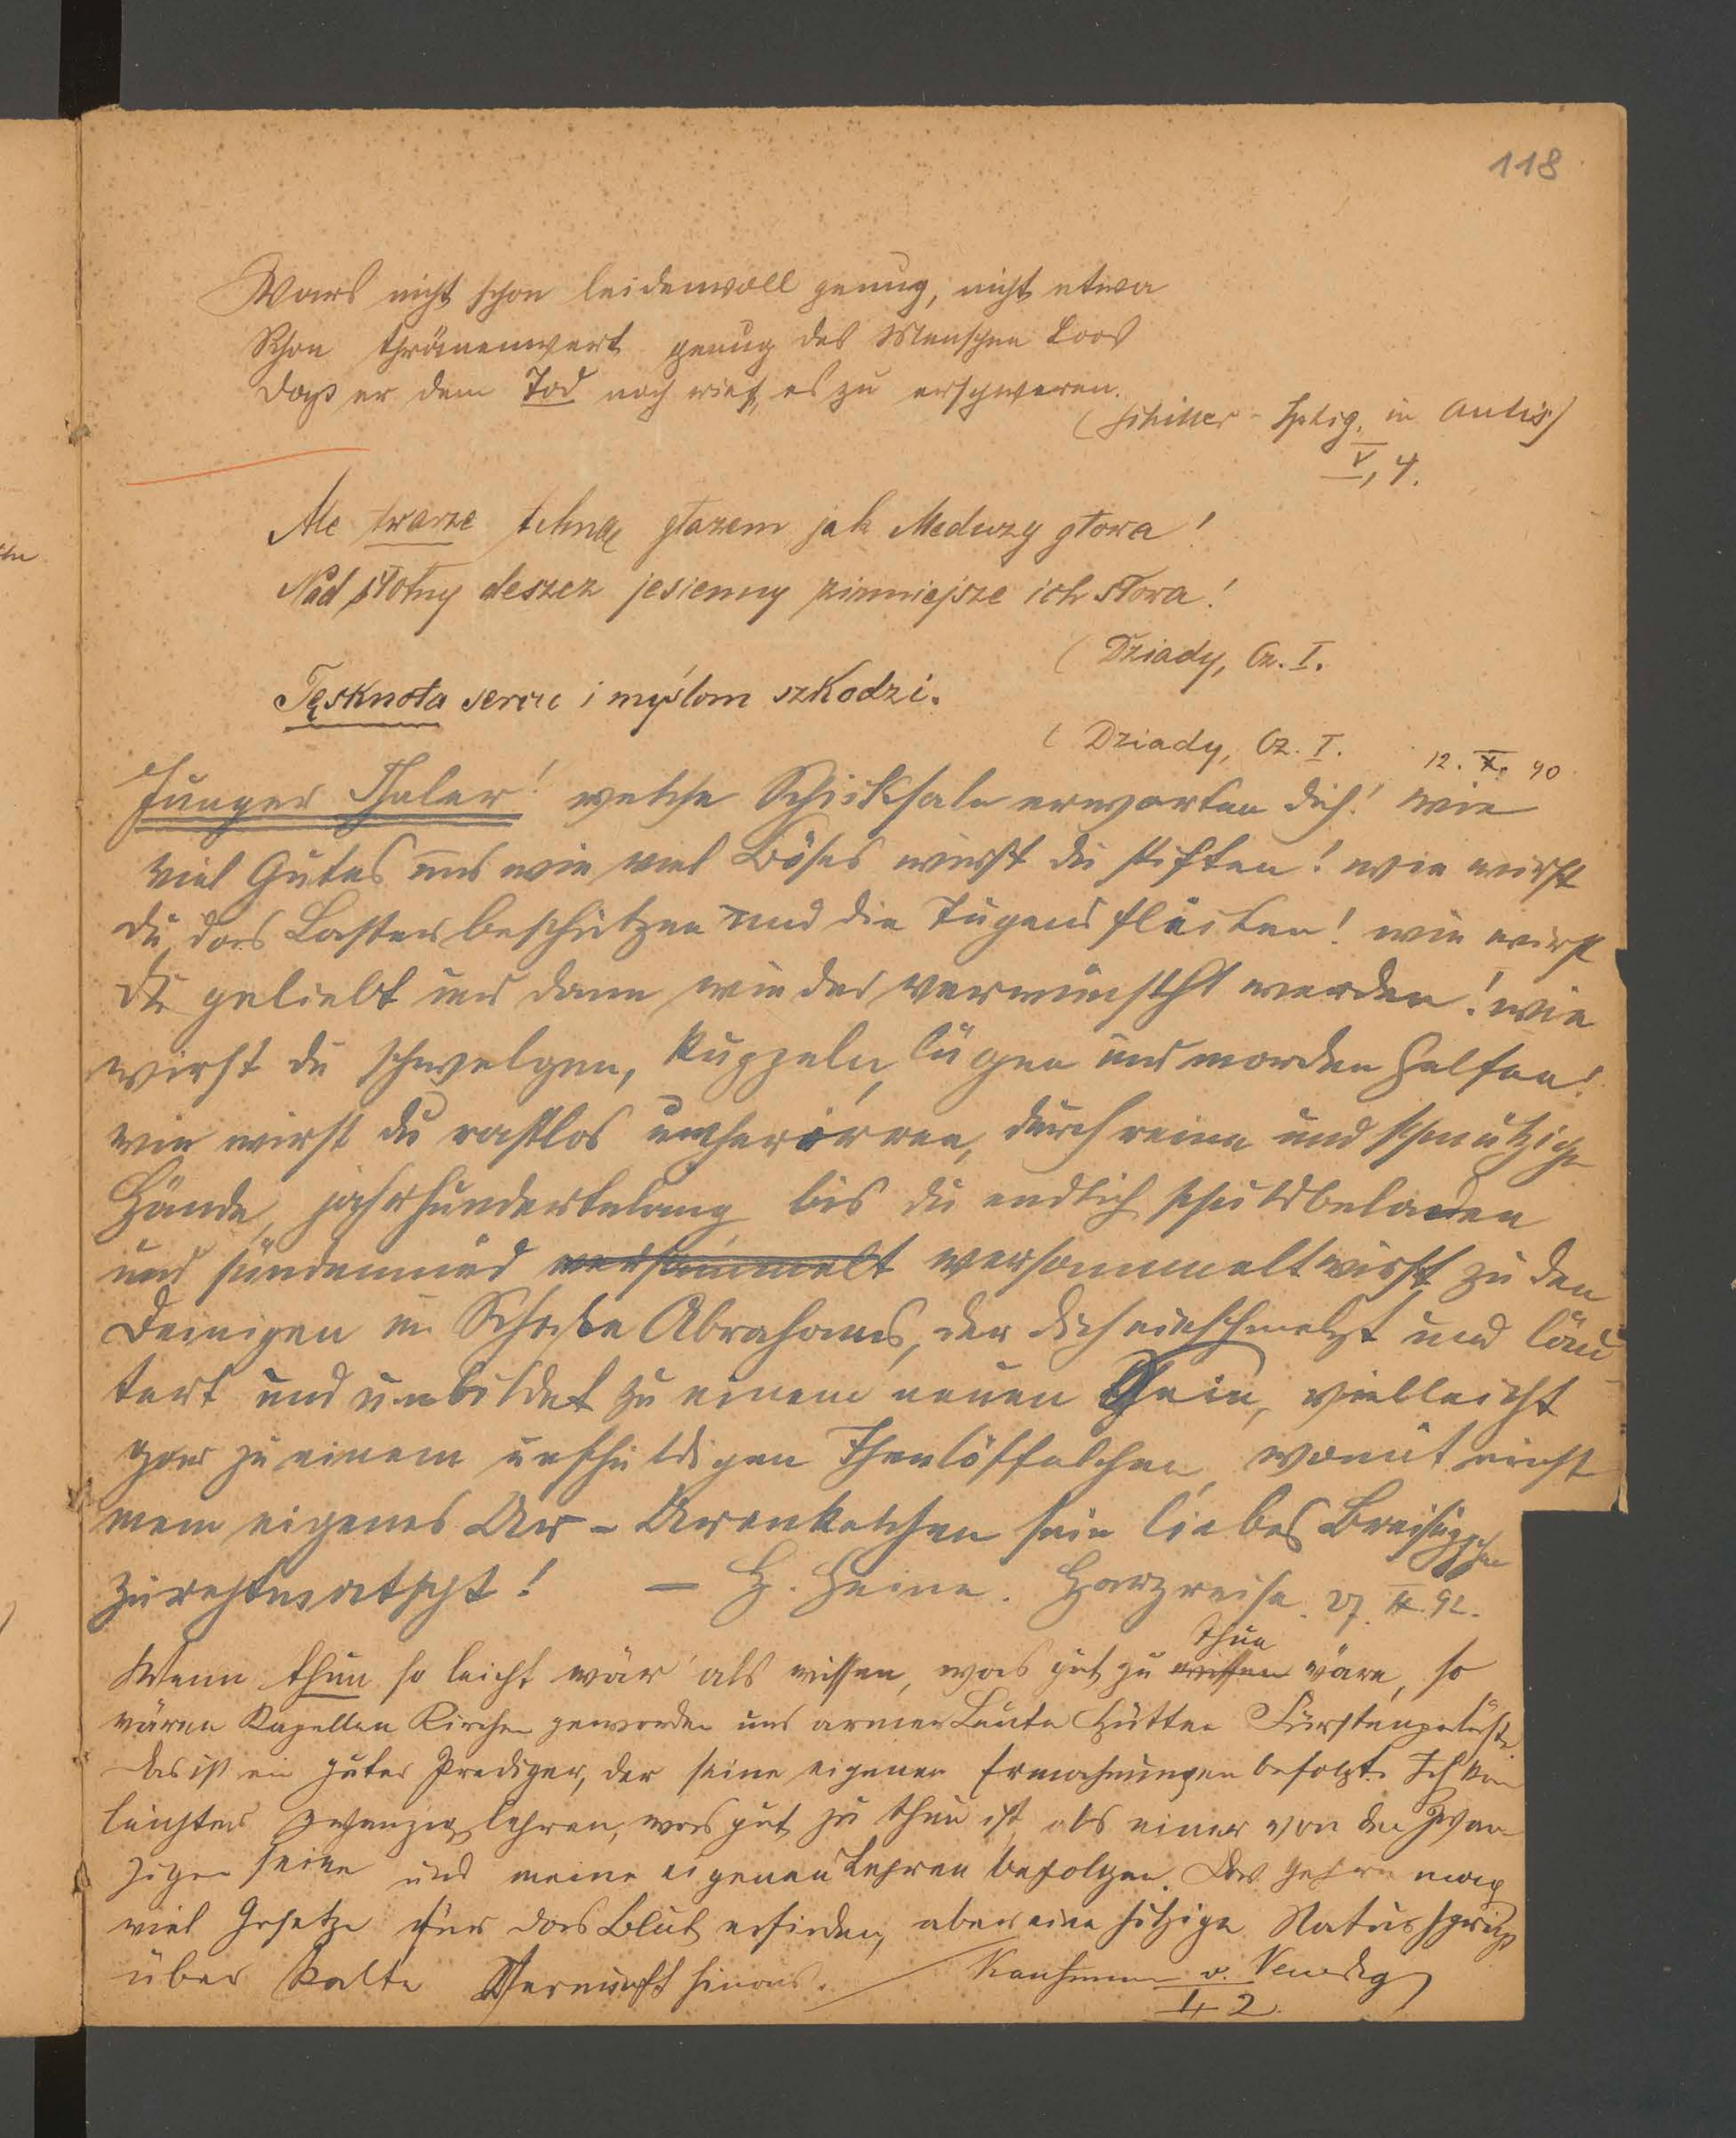 118
Wars nicht schon leidenvoll genug, nicht etwa
Schon thränenwert genug des Menschen Loos
Daß er dem Tod noch rief, es zu erschweren.
(Schiller - Iphig. in Aulis)
V, 4.
Ale twarze tchną głazem jak Meduzy głowa!
Nad słotny deszcz jesienny zimniejsze ich słowa!
(Dziady, Cz. I.
Tęsknota sercu i myślom szkodzi.
(Dziady, Cz. I. 12. X. 90
Junger Thaler! welche Schicksale erwarten dich! wie
viel Gutes und wie viel Böses wirst du stiften! wie wirst
du das Laster beschützen und die Tugend flicken! wie wirst
du geliebt und dann wieder verwünscht werden! wie
wirst du schwelgen, kuppeln, lügen und morden helfen!
wie wirst du rastlos umherirren, durch reine und schmutzige
Hände, jahrhundertelang bis du endlich schuldbeladen
und sündenmüd versammelt versammelt wirst zu den
Deinigen im Schoße Abrahams, der dich einschmelzt und läu
tert und umbildet zu einem neuen Sein, vielleicht
gar zu einem unschuldigen Theelöffelchen, womit einst
mein eigenes Ur-Urenkelchen sein liebes Breisüppchen
zurechtmatscht! — H. Heine. Harzreise. 27. II. 92.
Wenn thun so leicht wär' als wissen, was gut zu wissen thun wäre, so
wären Kapellen Kirchen geworden und armer Leute Hütten Fürstenpaläste.
Das ist ein guter Prediger, der seine eigenen Ermahnungen befolgt. Ich kann
leichter zwanzig lehren, was gut zu thun ist als einer von den Zwan
zigen sein und meine eigenen Lehren befolgen. Das Gehirn mag
viel Gesetze für das Blut erfinden, aber eine hitzige Natur springt
über kalte Vernunft hinaus. Kaufmann v. Venedig
I, 2.